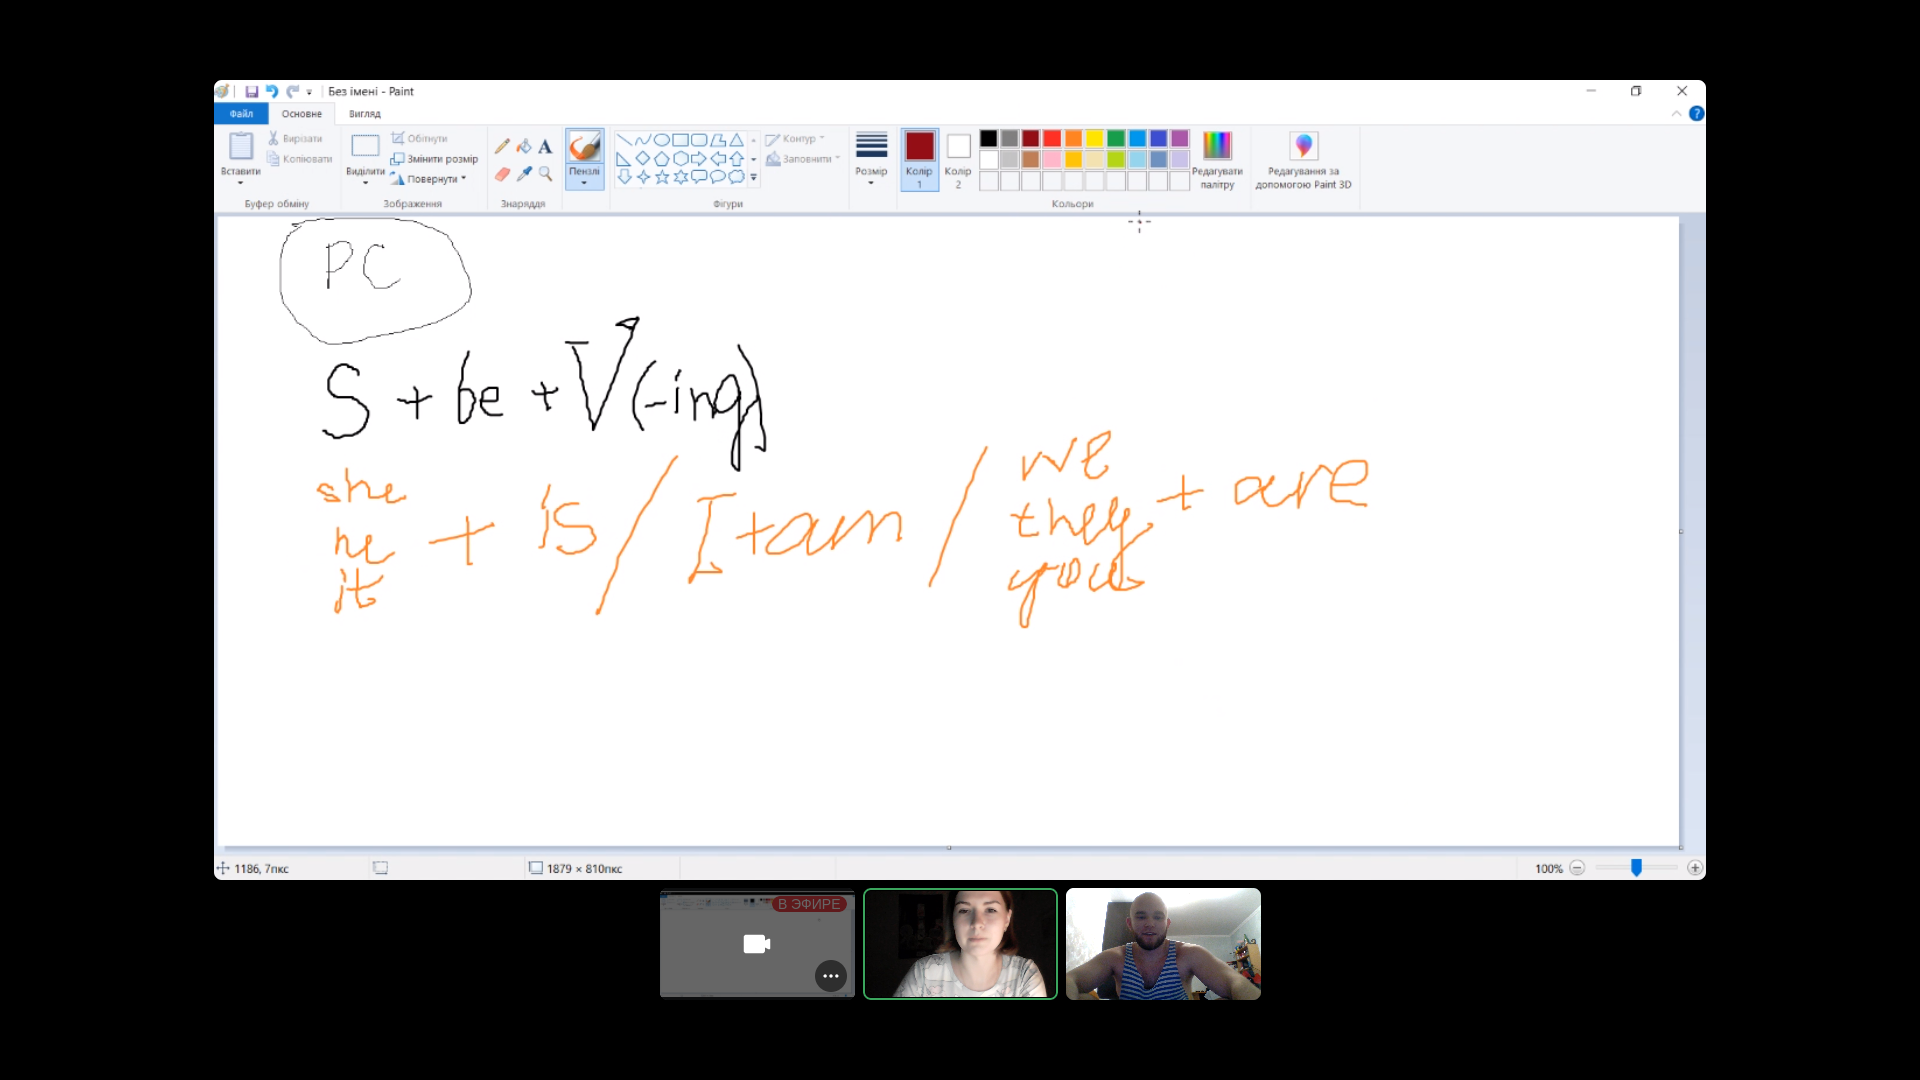 Без імені - Paint
Файл Основне Вигляд
Вставити
Вирізати
Копіювати
Буфер обміну
Виділити
Обітнути
Змінити розмір
Повернути
Зображення
A
Знаряддя
Пензлі
Контур
Заповнити
Фігури
Розмір
Колір 1
Колір 2
Кольори
Редагувати палітру
Редагування за допомогою Paint 3D
PC
S + be + V(-ing)
she
he + is / I + am / we they you + are
it
1186, 7пкс
1879 × 810пкс
100%
В ЭФИРЕ